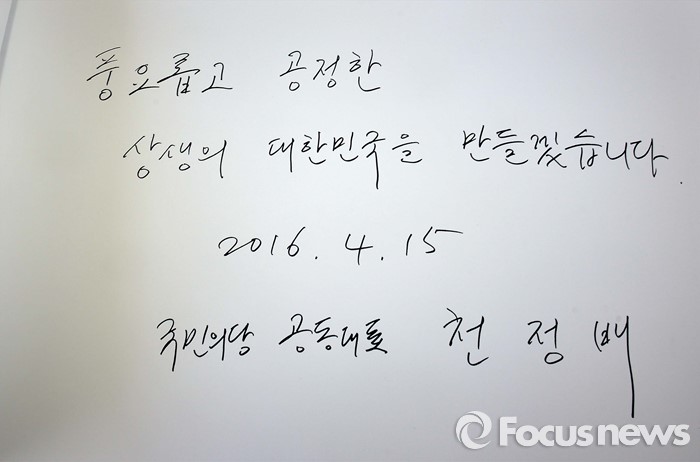 풍요롭고 공정한
상생의 대한민국을 만들겠습니다
2016. 4. 15
국민의당 공동대표 천정배
Focusnews